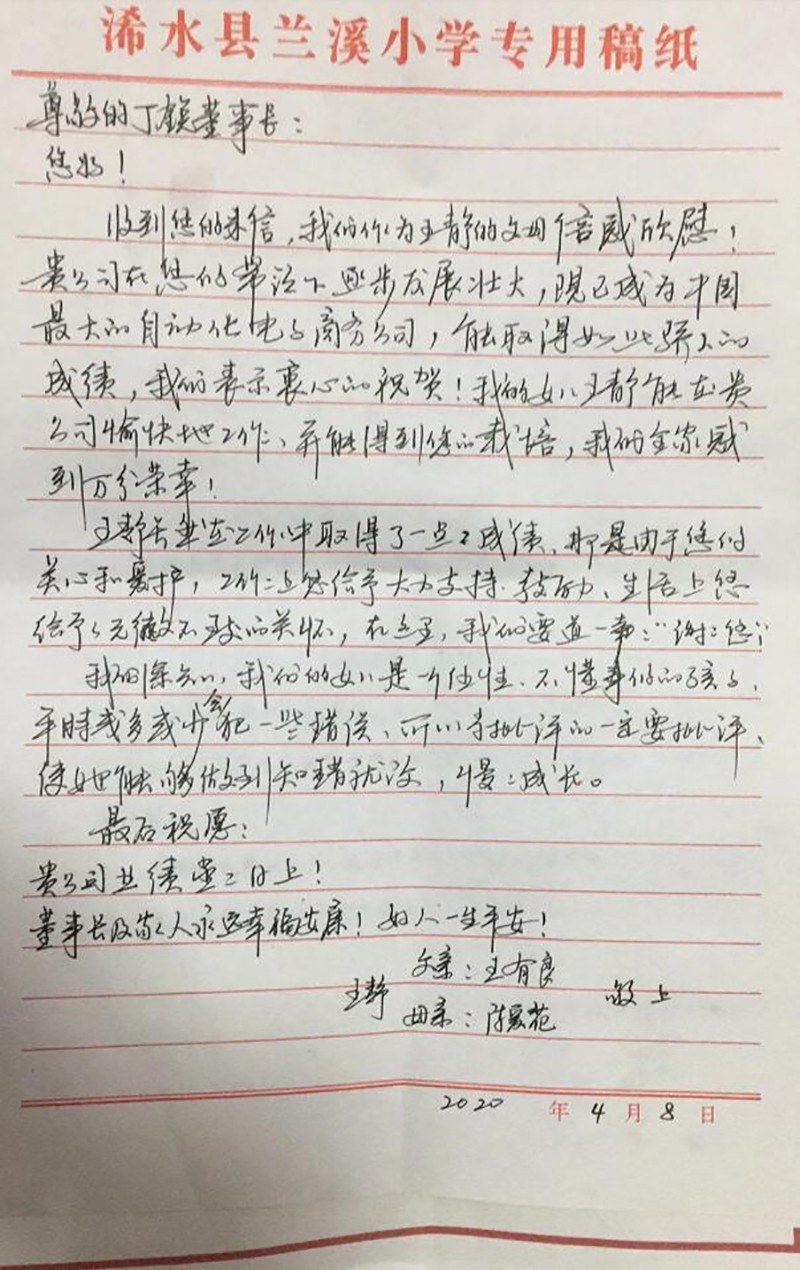 浠水县兰溪小学专用稿纸
尊敬的丁毅董事长：
您好！
收到您的来信，我们作为王静的父母倍感欣慰！
贵公司在您的带领下逐步发展壮大，现已成为中国
最大的自动化电子商务公司，能取得如此骄人的
成绩，我们表示衷心的祝贺！我的女儿王静能在贵
公司愉快地工作、并能得到您的栽培，我们全家感
到万分荣幸！
王静虽然在工作中取得了一点点成绩、那是由于您的
关心和爱护，工作上您给予大力支持、鼓励、生活上您
给予了无微不至的关怀，在这里，我们要道一声："谢谢您！"
我们深知，我们的女儿是个任性、不懂事的孩子，
平时或多或少会犯一些错误、所以该批评的一定要批评、
使她能够做到知错就改，慢慢成长。
最后祝愿：
贵公司业绩蒸蒸日上！
董事长及家人永远幸福安康！好人一生平安！
王静 父亲：王有良
母亲：陈爱花 敬上
2020 年 4 月 8 日